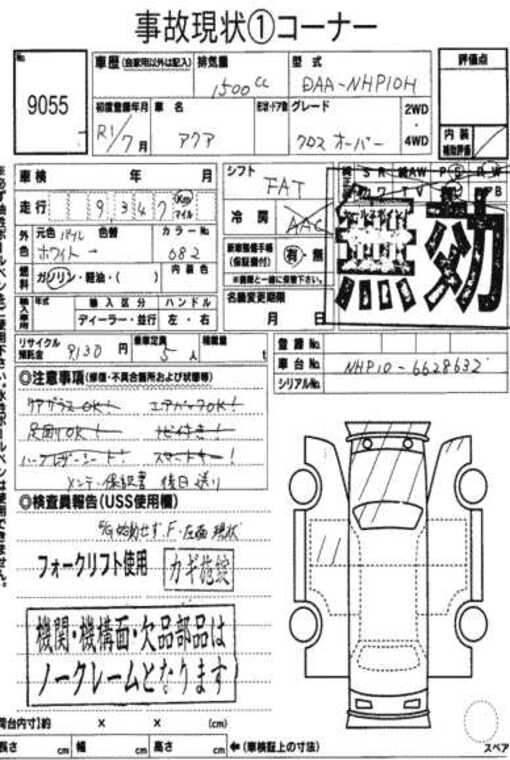 事故現状①コーナー
No.
9055
車歴(自家用以外は記入)
排気量
1500cc
型式
DAA-NHP10H
評価点
初度登録年月
R1/7月
車名
アクア
形状・ドア数
グレード
クロスオーバー
2WD
・
4WD
内装
補助評価
車検 年 月
シフト
FAT
走行 9,347 Km マイル
冷房
AAC
外色
元色 パール
ホワイト
色替
→
カラーNo.
082
新車整備手帳
(保証書付)
有・無
※書類と一緒に保管下さい。
SR
AW
PS
PW
TV
PB
無効
燃料
ガソリン・軽油・( )
内装色
輸入車用
年式
輸入区分
ハンドル
ディーラー・並行
左・右
名義変更期限
月 日
リサイクル預託金
9,130円
乗車定員
5人
積載量
t
登録No.
車台No.
NHP10-6628632
シリアルNo.
◎注意事項(修復・不具合箇所および状態等)
リアガラスOK!
エアバックOK!
足回りOK!
ナビ付き!
ハーフレザーシート!
スマートキー!
メンテ、保証書 後日送り
◎検査員報告(USS使用欄)
E/G始動せず.F・左面現状
フォークリフト使用
カギ施錠
機関・機構面・欠品部品は
ノークレームとなります
荷台内寸)約 × × (cm)
長さ cm
幅 cm
高さ cm
←(車検証上の寸法)
スペア